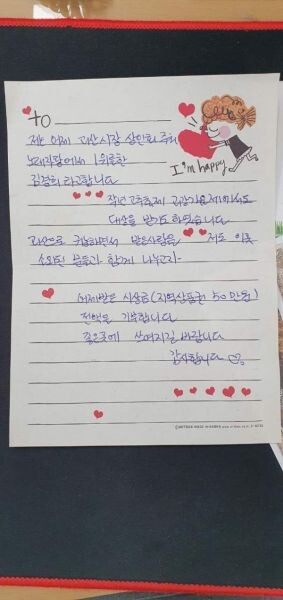 to
I'm happy
저는 어제 괴산시장 상인회 주최
노래자랑에서 1위를한
김경희 라고합니다
작년 고추축제 괴산가요제에서도
대상을 받기도 하였습니다
괴산으로 귀농하면서 받은사랑을 저도 이웃
소외된 분들과 함께 나누고자
어제받은 시상금(지역상품권 50만원)
전액을 기부합니다
좋은곳에 쓰여지길 바랍니다
감사합니다